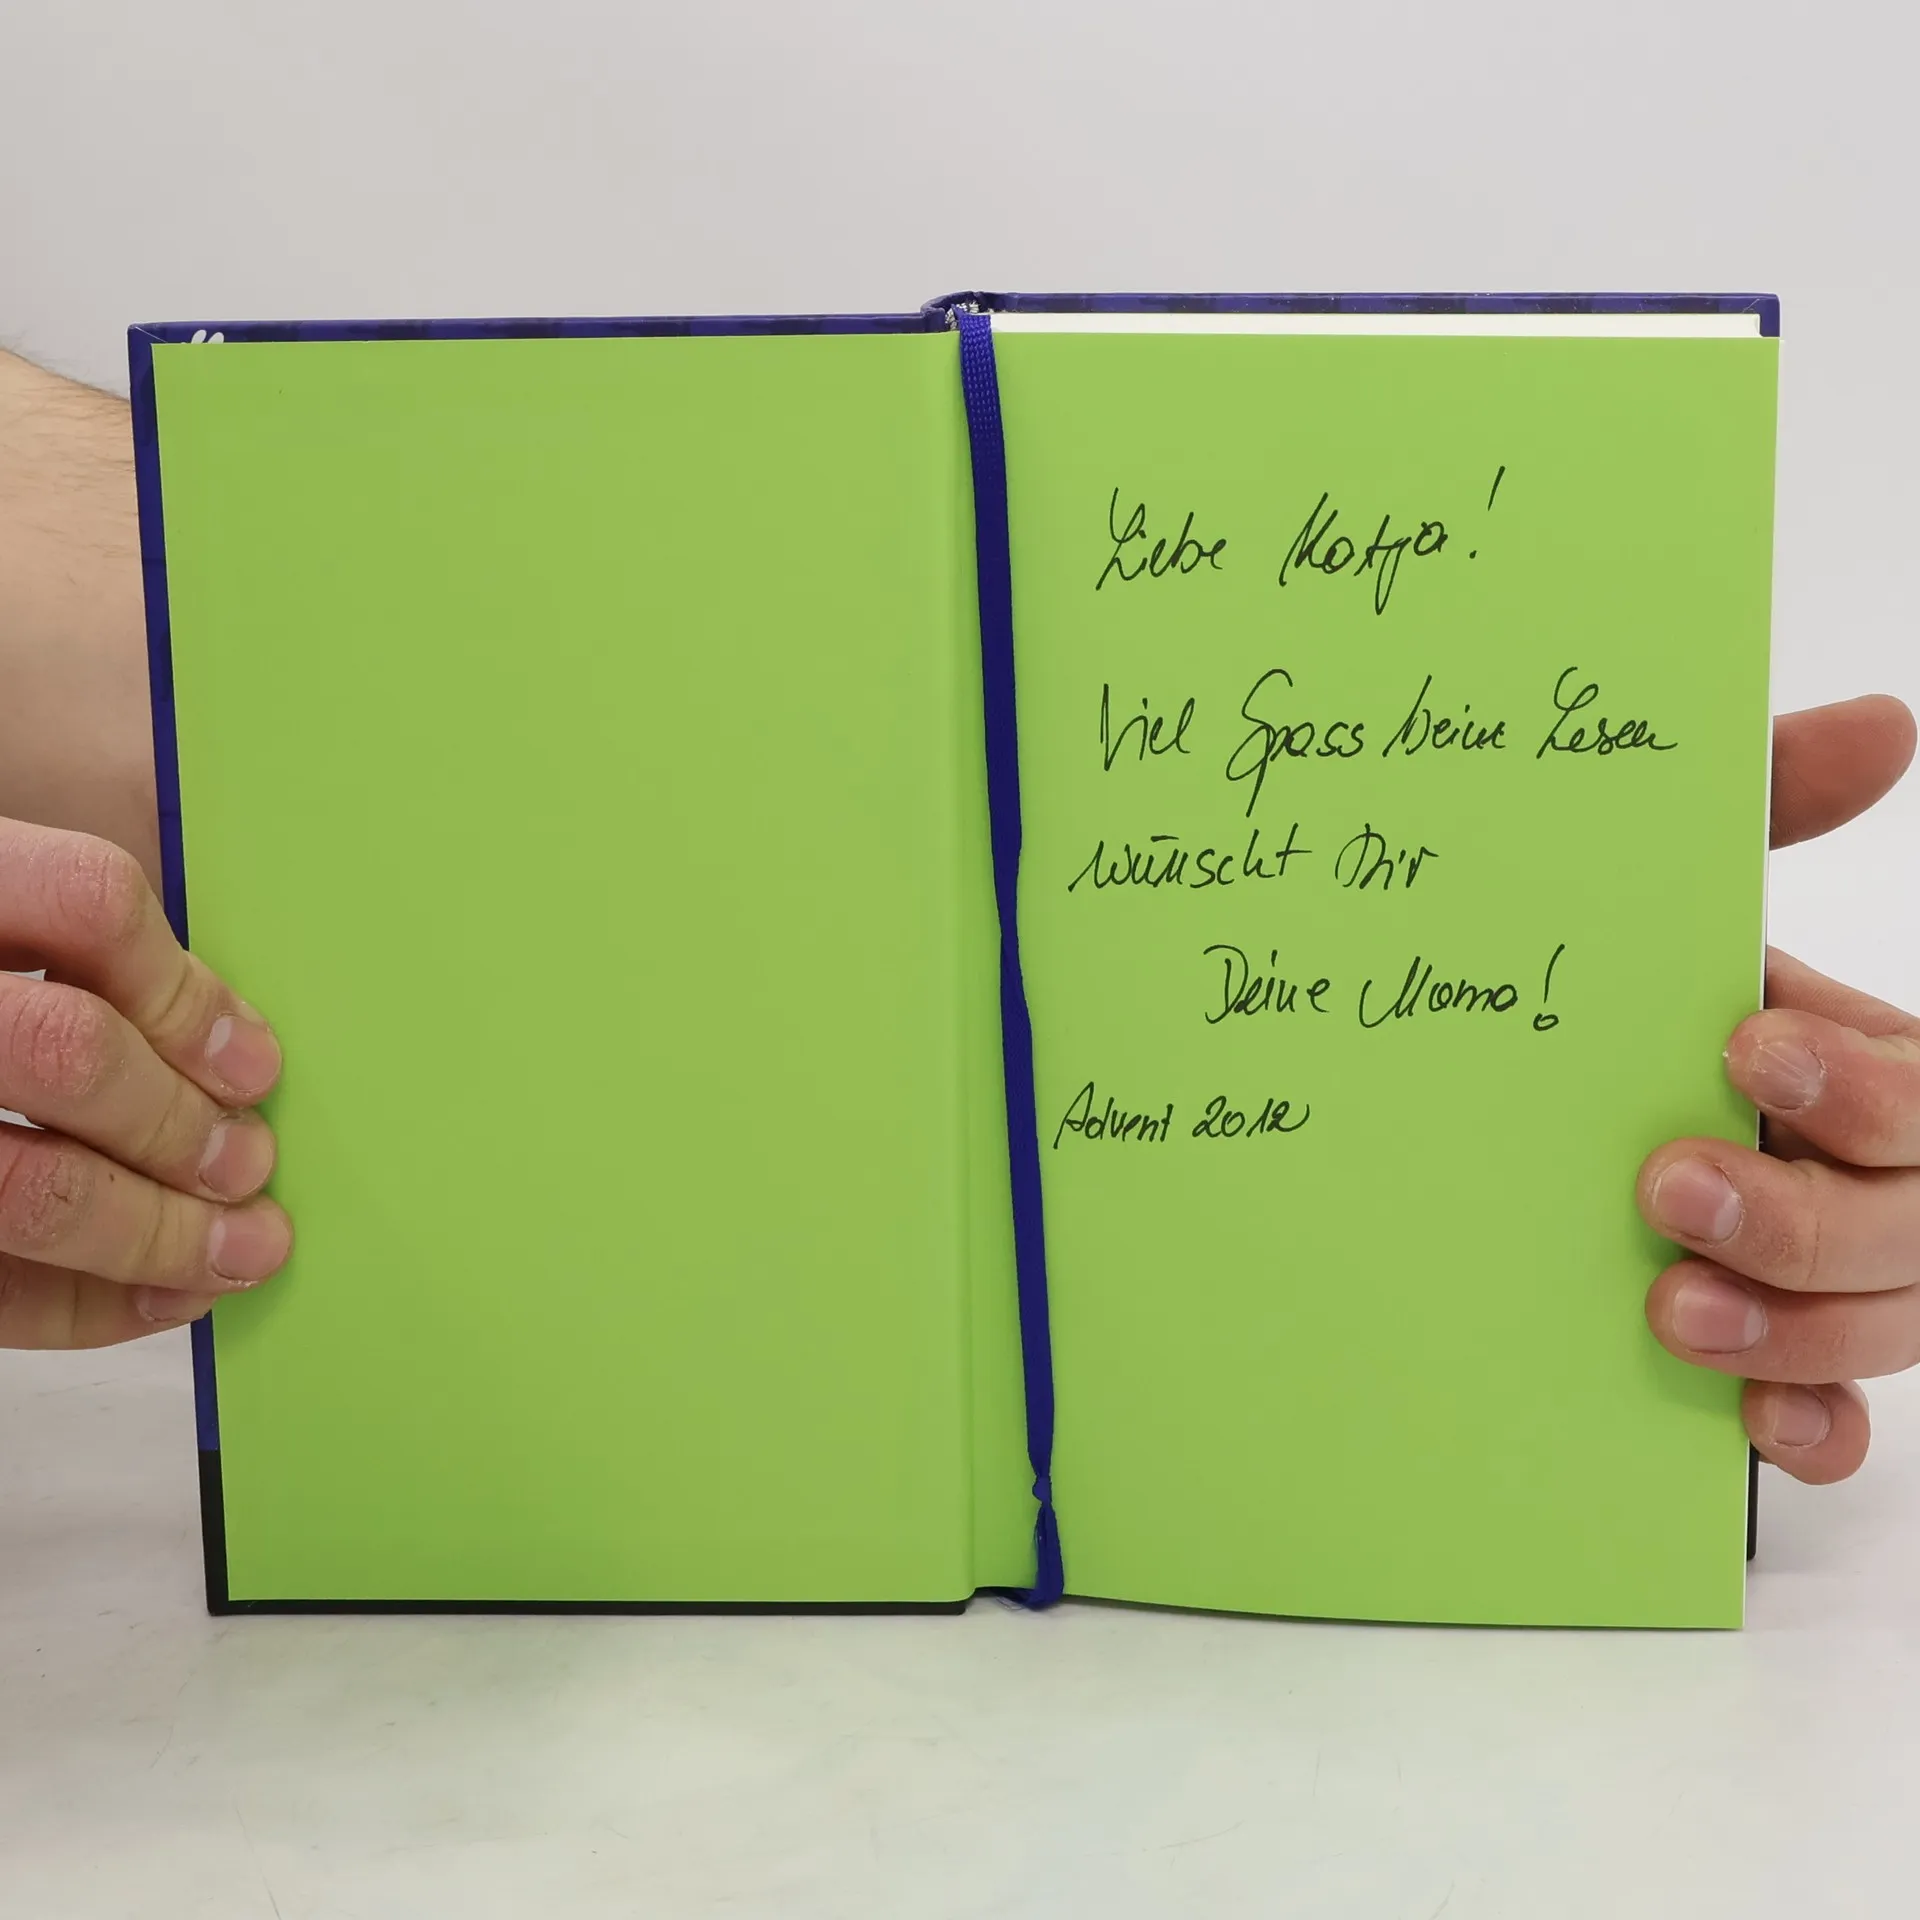 Liebe Katja!
Viel Spass beim Lesen
wünscht Dir
Deine Mama!
Advent 2012